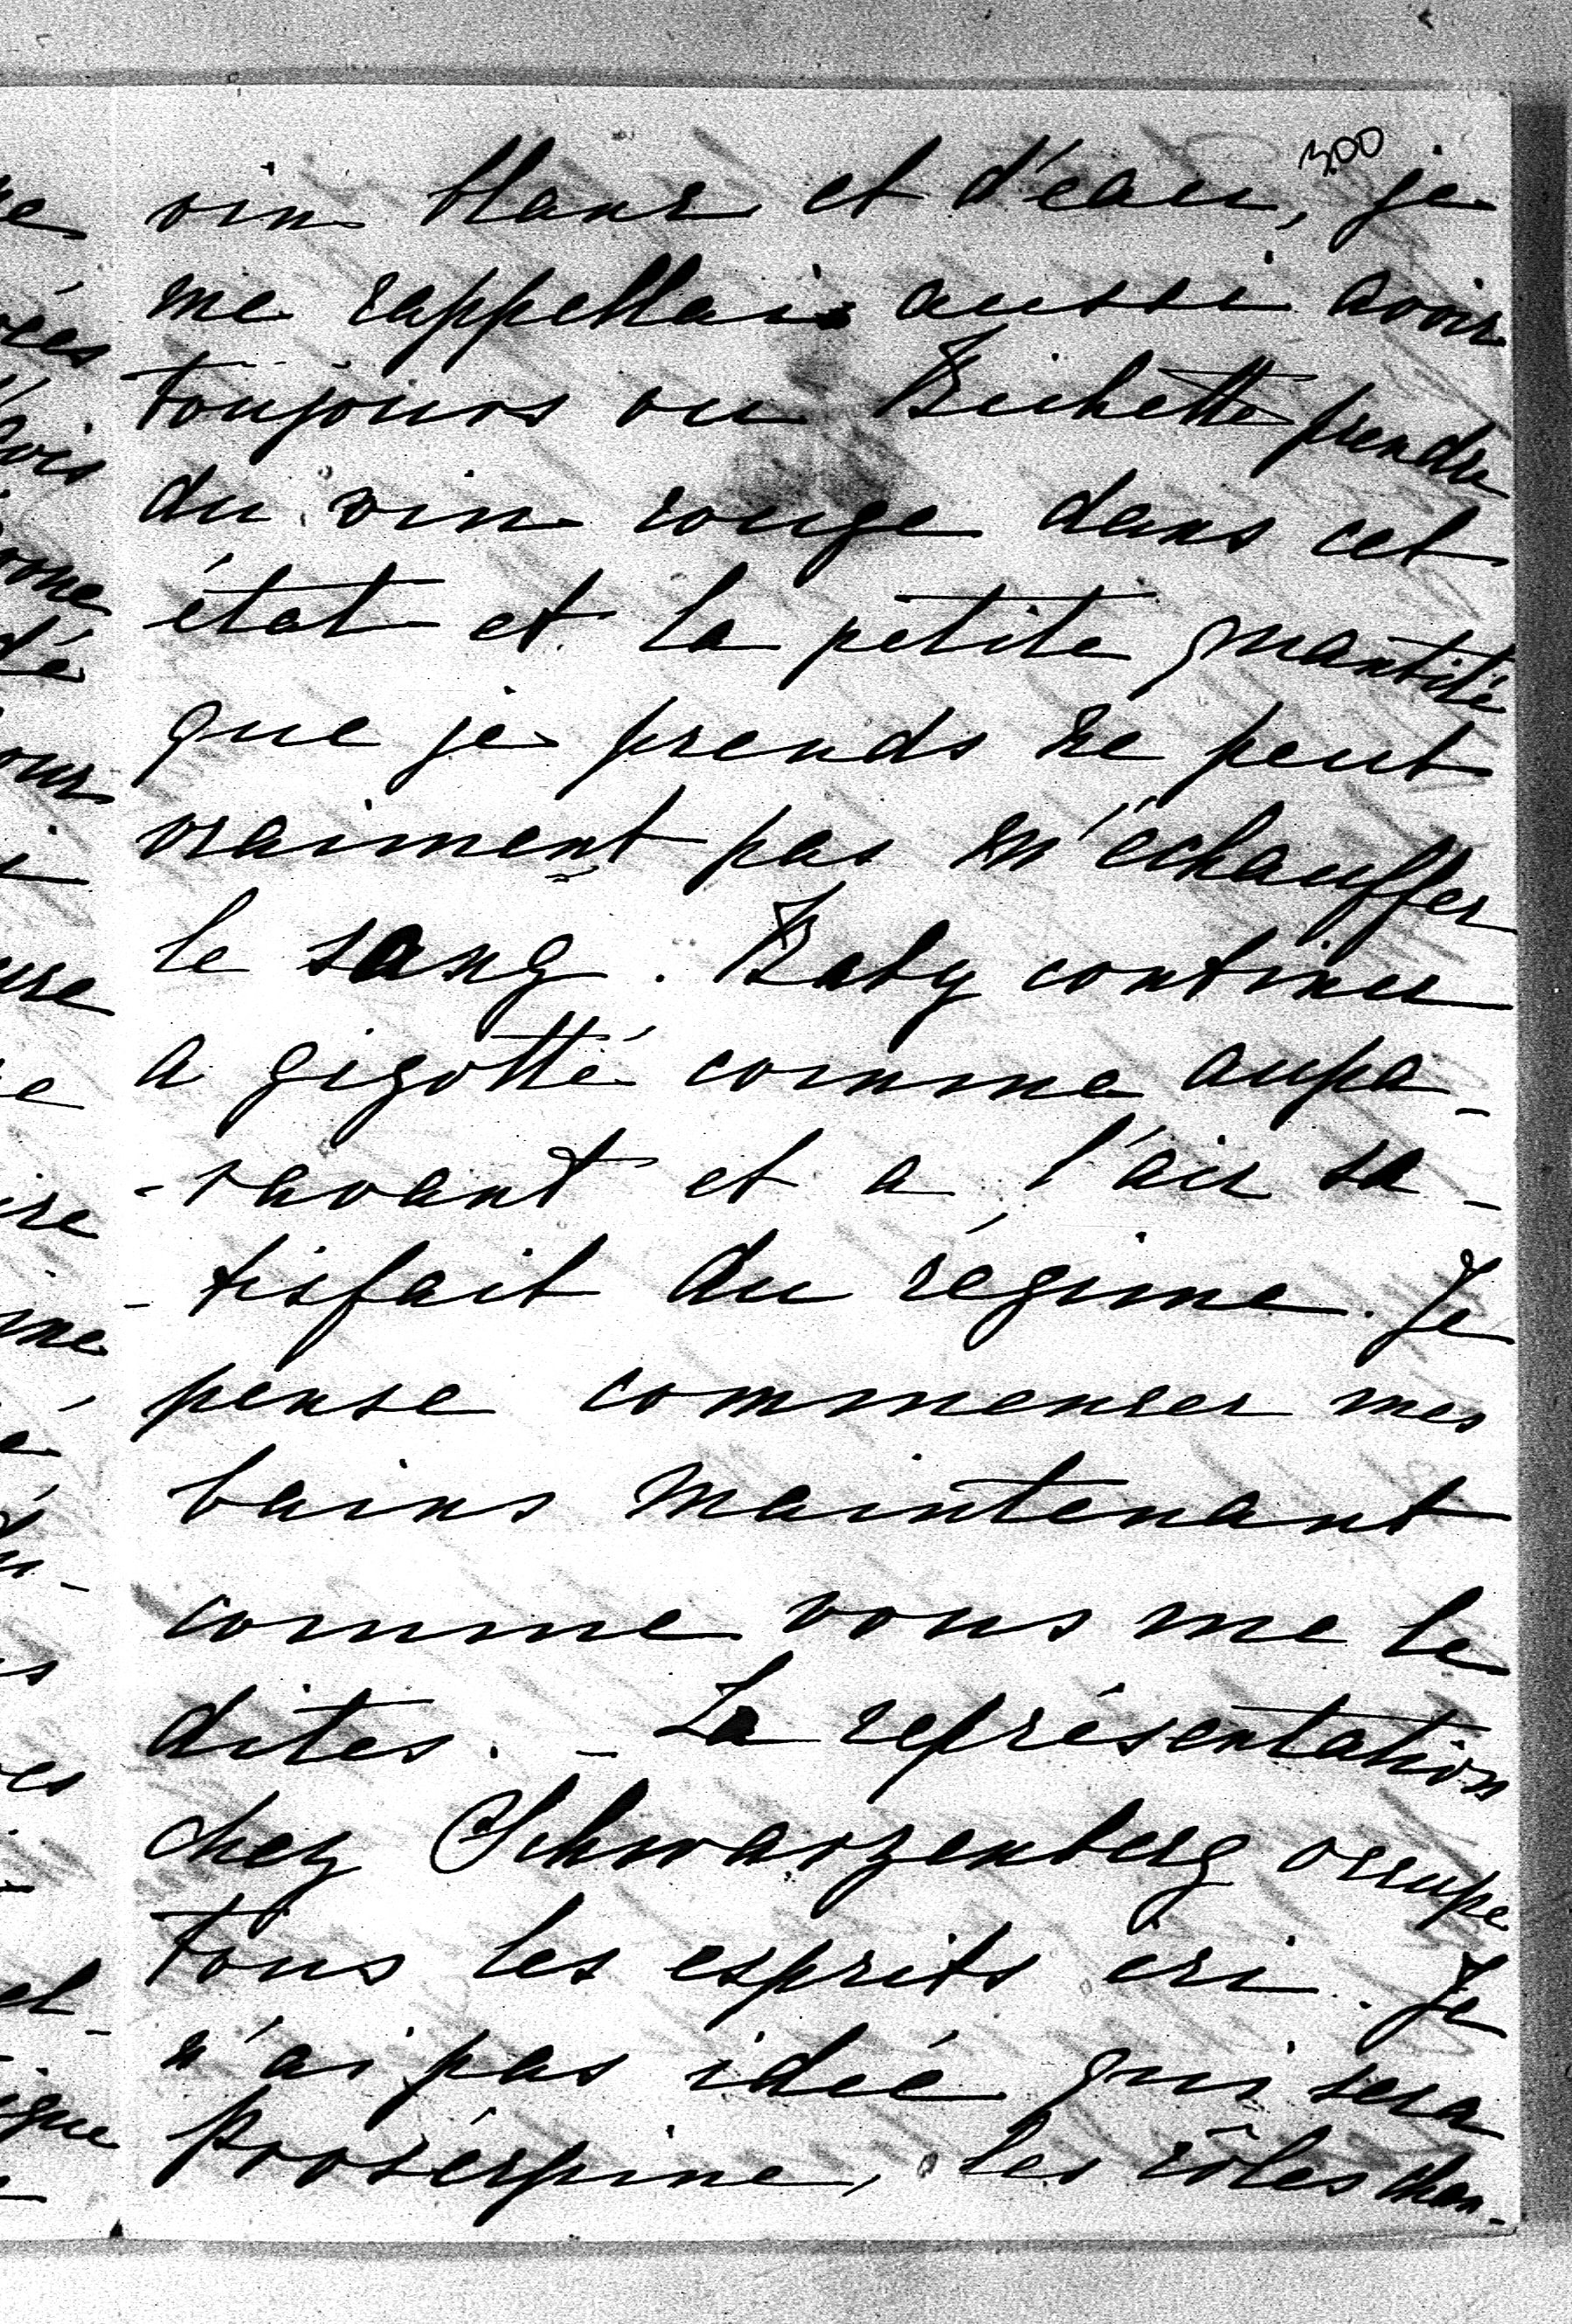 300
vin blanc et d'eau, je
me rappellais aussi avoir
toujours vu Bichette prendre
du vin rouge dans cet
état et la petite quantité
que je prends ne peut
vraiment pas m'échauffer
le sang. Baby continue
a gigotté comme aupa-
-ravant et a l'air sa-
-tisfait du régime. Je
pense commencer mes
bains maintenant
comme vous me le
dites. - La représentation
chez Schwarzenberg occupe
tous les esprits ici. Je
n'ai pas idée qui sera
Prosérpine, les rôles chan-